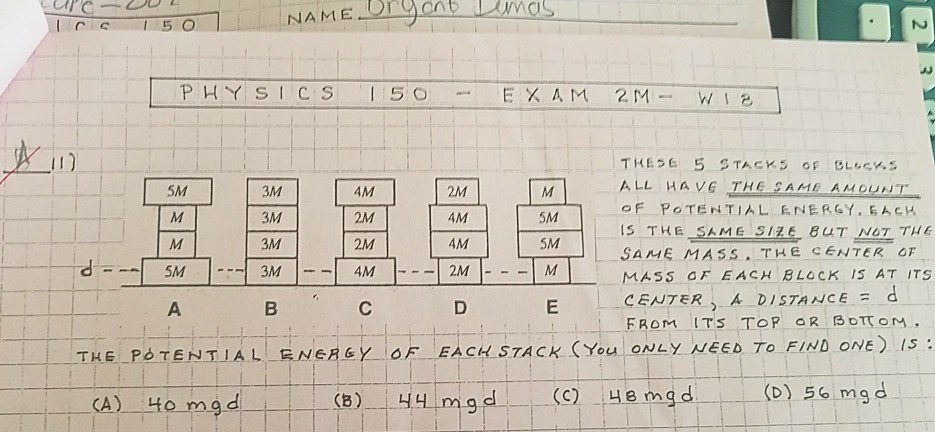 150
NAME Bryant Lemas
PHYSICS 150 - EXAM 2M- W18
A 11)
THESE 5 STACKS OF BLOCKS
ALL HAVE THE SAME AMOUNT
OF POTENTIAL ENERGY. EACH
IS THE SAME SIZE BUT NOT THE
SAME MASS. THE CENTER OF
MASS OF EACH BLOCK IS AT ITS
CENTER, A DISTANCE = d
FROM IT'S TOP OR BOTTOM.
5M 3M 4M 2M M
M 3M 2M 4M 5M
M 3M 2M 4M 5M
d 5M 3M 4M 2M M
A B C D E
THE POTENTIAL ENERGY OF EACH STACK (YOU ONLY NEED TO FIND ONE) IS:
(A) 40 mgd (B) 44 mgd (C) 48 mgd (D) 56 mgd
2
3